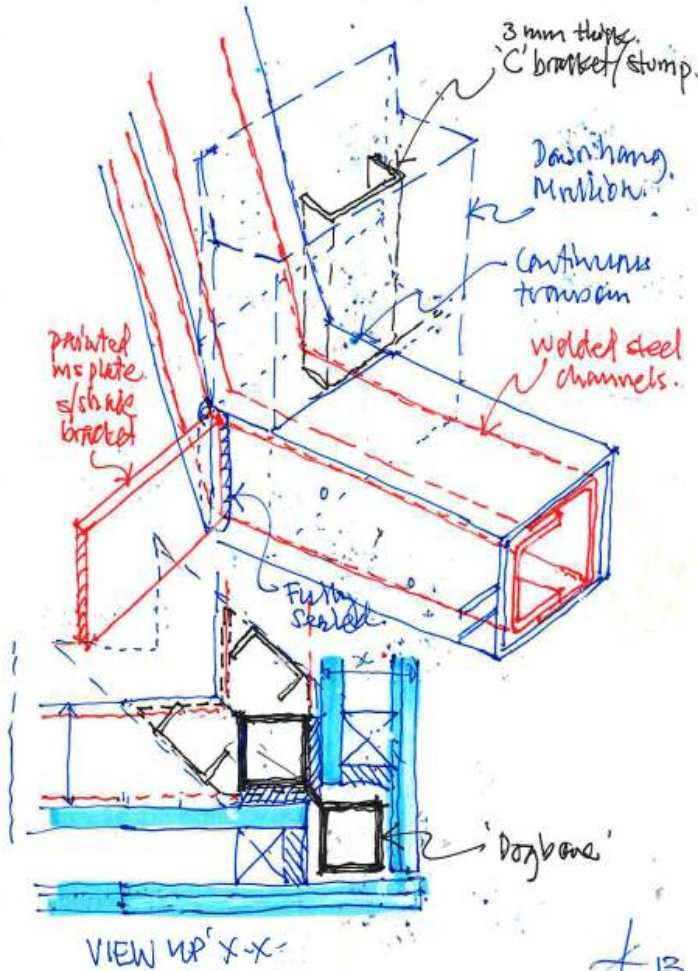 3 mm thick.
'C' bracket/stump.
Downhang
Mullion.
Continuous
transom
welded steel
channels.
painted
ms plate
s/shade
bracket
Fully
Sealed.
x
'Dogbone'
VIEW UP' X-X-